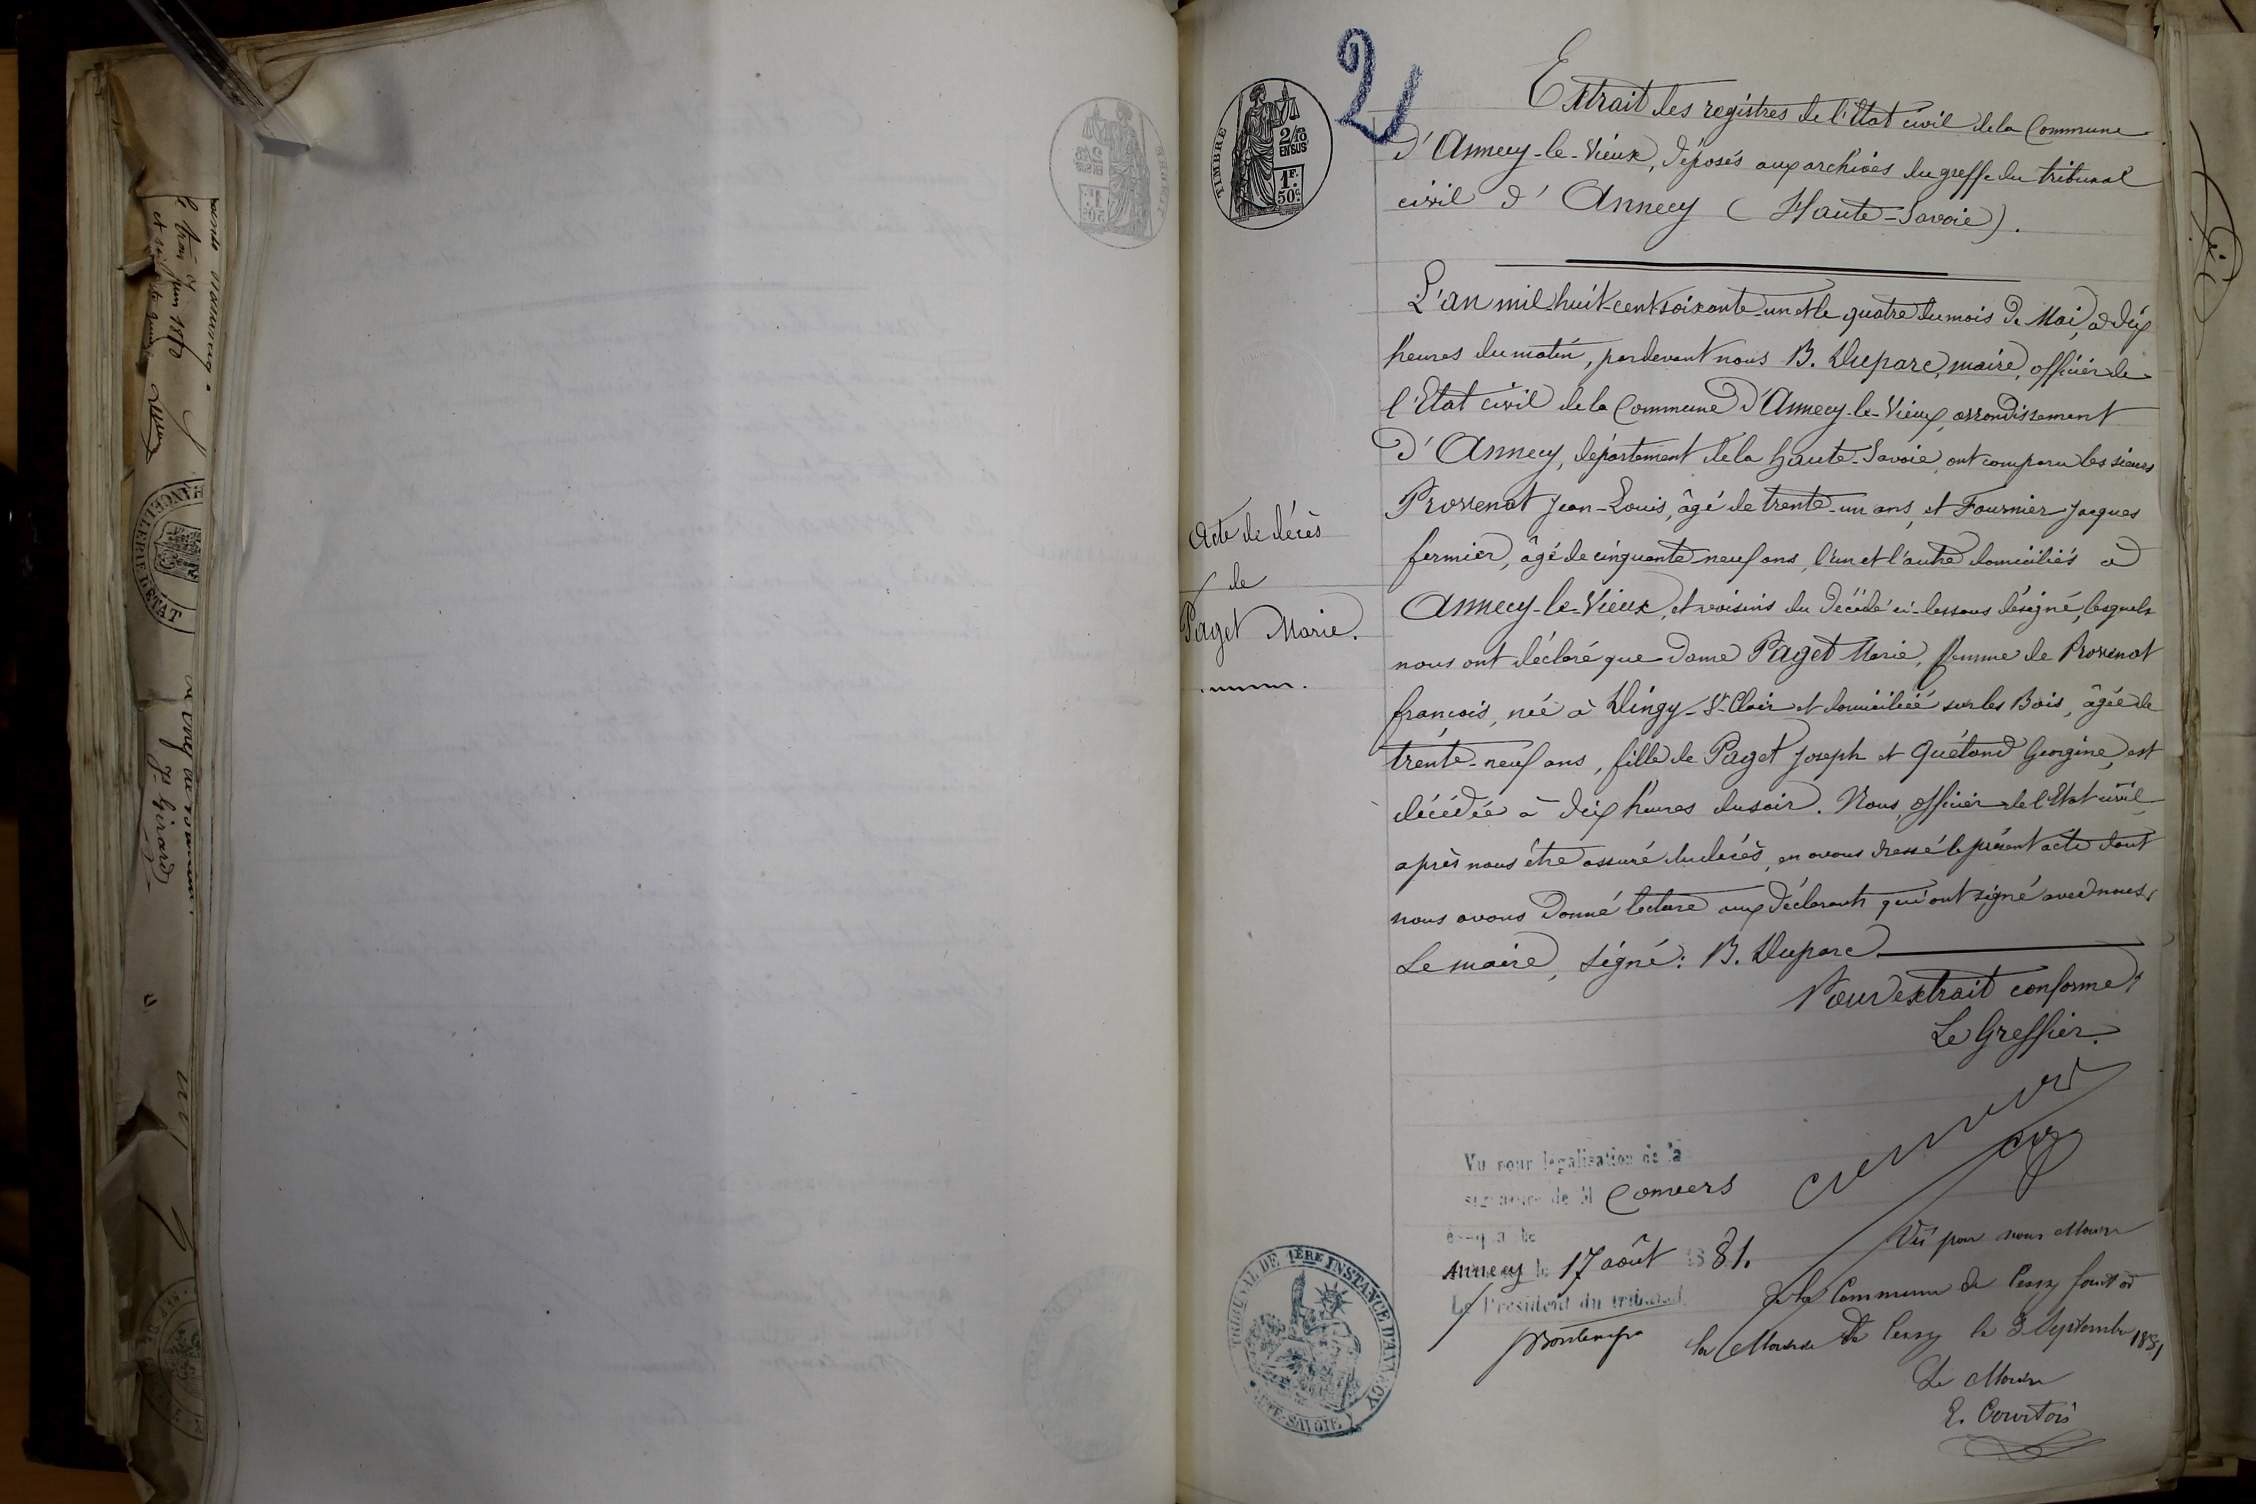 2
TIMBRE
2/10
EN SUS
1F.
50c
Extrait des registres de l'Etat civil de la Commune
d'Annecy-le-Vieux, déposés aux archives du greffe du tribunal
civil d'Annecy (Haute-Savoie).
L'an mil-huit-cent-soixante-un et le quatre du mois de Mai, à dix
heures du matin, pardevant nous B. Duparc, maire, officier de
l'Etat civil de la Commune d'Annecy-le-Vieux, arrondissement
d'Annecy, département de la haute-Savoie, ont comparu les sieurs
Provenat Jean-Louis, âgé de trente-un ans, et Fournier Jacques
fermier, âgé de cinquante neuf ans, l'un et l'autre domiciliés à
Annecy-le-Vieux, et voisins du décédé ci-dessous désigné, lesquels
nous ont déclaré que dame Paget Marie, femme de Provenat
françois, née à Dingy-St-Clair et domiciliée sur les Bois, âgée de
trente-neuf ans, fille de Paget Joseph et Quétand Georgine, est
décédée à dix heures du soir. Nous, officier de l'Etat civil,
après nous être assuré du décès, en avons dressé le présent acte dont
nous avons donné lecture aux déclarants qui ont signé avec nous.
Le maire, signé: B. Duparc.
Acte de décès
de
Paget Marie.
Pour extrait conforme,
Le Greffier.
Vu pour légalisation de la
signature de M Convers
Annecy le 17 août 1881.
Le Président du tribunal
Vu par nous Maire
de la Commune de
la Mairie de le 3 Septembre 1881
Le Maire
E. Courtois
TRIBUNAL DE 1ÈRE INSTANCE D'ANNECY
HTE-SAVOIE
CHANCELLERIE D'ÉTAT